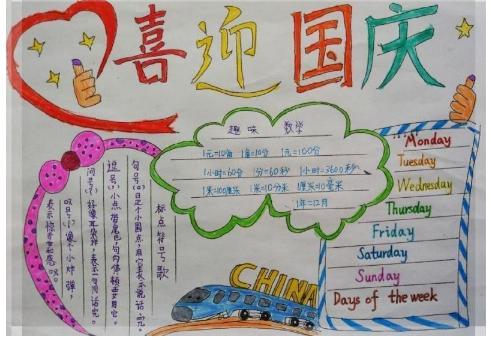 喜迎国庆
趣味 数学
1元=10角 1角=10分 1元=100分
1小时=60分 1分=60秒 1小时=3600秒
1米=100厘米 1米=10分米 1厘米=10毫米
1年=12月
标点符号歌
句号(。)是个小圆点,用它表示说话完。
逗号,小点带尾巴,句内停顿要用它。
问号(?)好像耳朵样,表示一句问话完。
叹号(!)像个小炸弹,
表示惊喜和感叹。
CHINA
Monday
Tuesday
Wednesday
Thursday
Friday
Saturday
Sunday
Days of the week